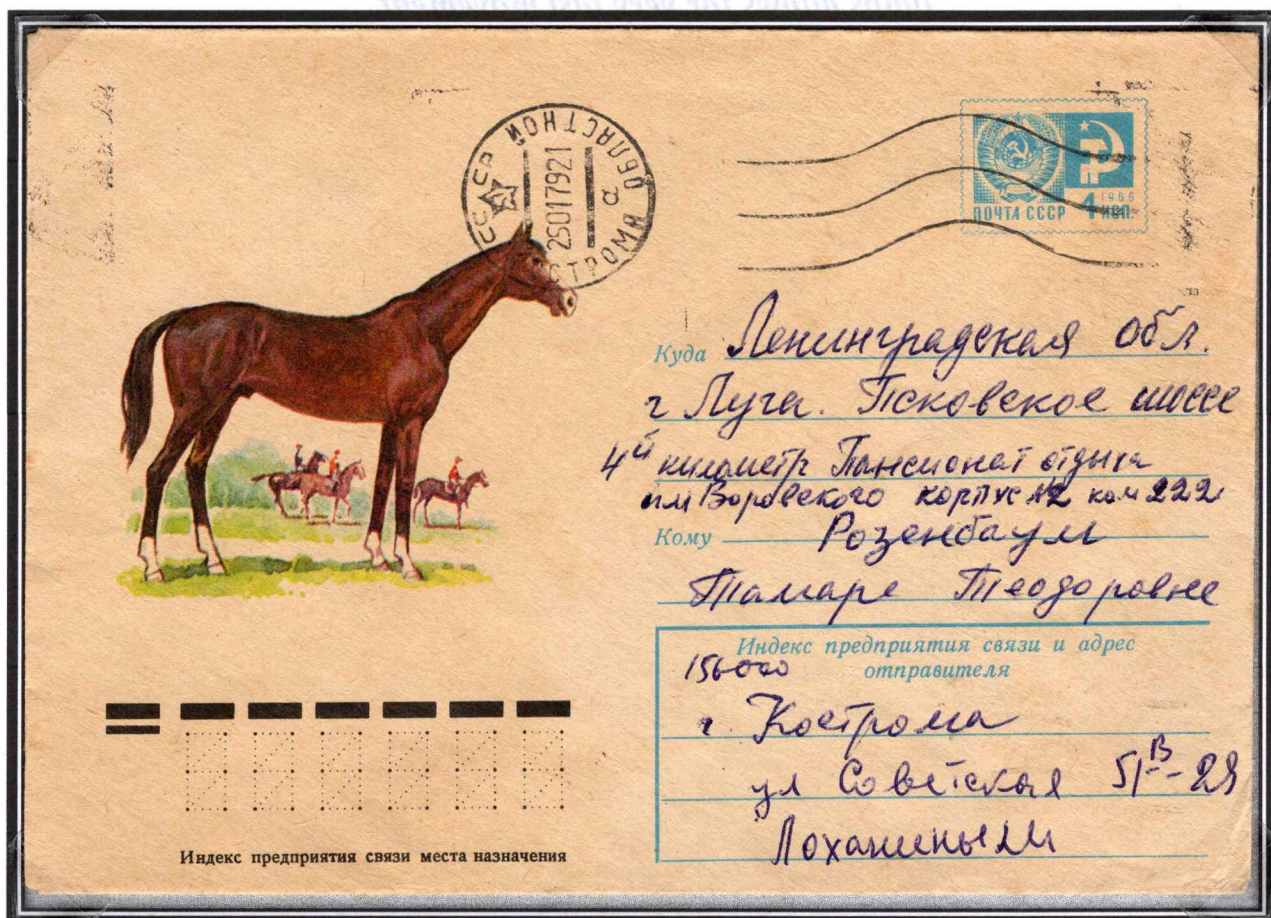 СССР
КОСТРОМА ОБЛАСТНОЙ
25017921
а
ПОЧТА СССР
1966
4 КОП.
Куда Ленинградская обл.
г Луга. Псковское шоссе
4й километр Пансионат отдыха
им Воровского корпус №2 ком 222
Кому Розенбаум
Тамаре Теодоровне
Индекс предприятия связи и адрес
отправителя
156000
г Кострома
ул Советская 51В-29
Индекс предприятия связи места назначения